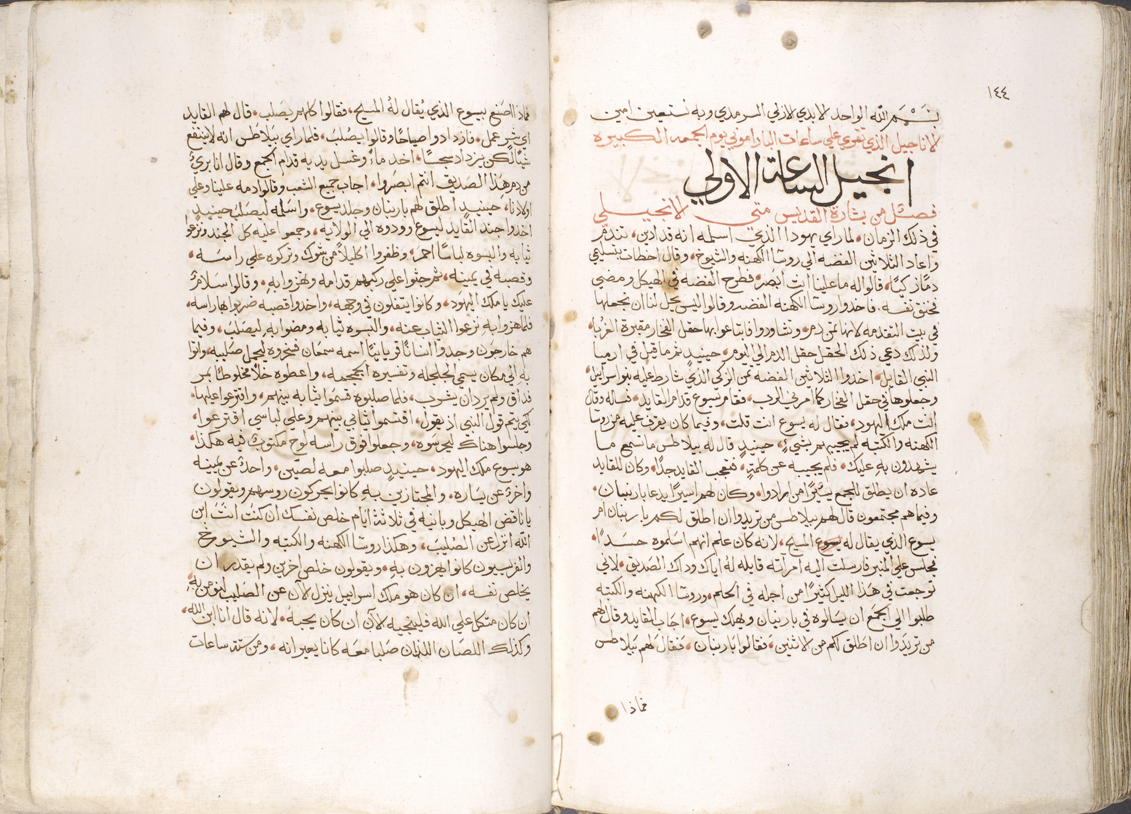 ١٤٤
بسم الله الواحد الابدي الازلي السرمدي وبه نستعين امين
الاناجيل الذي تقري علي ساعات البارامونى يوم الجمعه الكبيره
انجيل الساعة الاولي
فصل من بشارة القديس متي الانجيلي
في ذلك الزمان، لما راي يهودا الذي اسلمه انه قد ادين، تندم
واعاد الثلاثين الفضه الي روسا الكهنه والشيوخ، وقال اخطات بتسليمي
دمًا زكيًا، قالوا له ما علينا انت ابصر، فطرح الفضه في الهيكل ومضي
فخنق نفسه، فاخدوا روسا الكهنه الفضه وقالوا ليس يحل لنا ان نجعلها
في بيت التقدمه لانها تمن دم، وتشاوروا فابتاعوا بها حقل الفخار مقبرة الغربا،
ولذلك دعي ذلك الحقل حقل الدم الي اليوم، حينيدٍ تم ما قيل في ارميا
النبي القايل، اخدوا الثلاثين الفضه تمن الزكي الذي شارط عليه بنو اسراييل،
وجعلوها في حقل الفخار كما امرني الرب، فقام يسوع قدام القايد، فساله وقال
انت ملك اليهود، فقال له يسوع انت قلت، وفيما كان يقرف عليه من روسا
الكهنه والكتبه لم يجيبهم بشيء، حينيدٍ قال له بيلاطس ما تسمع ما
يشهدون به عليك، فلم يجيبه عن كلمةٍ، فتعجب القايد جدًا، وكان للقايد
عاده ان يطلق للجمع اسيرًا من ارادوا، وكان لهم اسيرًا يدعا باربنان،
وفيما هم مجتمعون قال لهم بيلاطس من تريدوا ان اطلق لكم باربنان ام
يسوع الذي يقال له يسوع المسيح، لانه كان علم انهم اسلموه حسدًا،
فجلس علي المنبر فارسلت اليه امراته قايله له اياك وداك الصديق، لاني
توجعت في هذا الليل كثيرًا من اجله في الحلم، وروسا الكهنه والكتبه
طلبوا الي الجمع ان يسالوه في باربنان ويهلك يسوع، اجاب القايد وقال لهم
من تريدوا ان اطلق لكم من الاثنين، فقالوا باربنان، فقال لهم بيلاطس
فماذا
فماذا اصنع بيسوع الذي يُقال لهُ المسيح، فقالوا كلهم يصلب، قال لهم القايد
اي شرٍ عمل، فازدادوا صياحًا وقالوا يُصلب، فلما راي بيلاطس انه لا ينتفع
شيًا لكن يزداد سجسًا، اخد ماءً وغسل يديه قدام الجمع وقال انا بريءٌ
من دم هذا الصديق انتم ابصروا، اجاب جميع الشعب وقالوا دمه علينا وعلي
اولادنا، حينيدٍ اطلق لهم باربنان وجلد يسوع، واسلمه ليصلب حينيدٍ
اخدوا جند القايد ليسوع وودوه الي الولايه، وجمعوا عليه كل الجند ونزعوا
ثيابه والبسوه لباسًا احمر، وظفروا اكليلًا من شوك وتركوه علي راسه،
وقصبه في يمينه، ثم جثوا علي ركبهم قدامه وهزوا به، وقالوا سلامٌ
عليك يا ملك اليهود، وكانوا يتفلون في وجهه، واخدوا قصبه ضربوا بها راسه،
فلما هزوا به نزعوا الثياب عنه، والبسوه ثيابه ومضوا به ليصلب، وفيما
هم خارجون وجدوا انسانًا قوريانيًا اسمه سمعان فسخروه ليحمل صليبه، واتوا
به الي مكان يسمي الجلجله وتفسيره الجمجمه، واعطوه خلًا مخلوطًا بمر
فداق ولم يرد ان يشرب، فلما صلبوه قسموا ثيابه بينهم، واقترعوا عليها،
لكي يتم قول النبي اذ يقول، اقتسموا ثيابي بينهم وعلي لباسي اقترعوا،
وجلسوا هناك ليحرسوه، وجعلوا فوق راسه لوح مكتوب فيه هكذا،
هو يسوع ملك اليهود، حينيدٍ صلبوا معه لصين، واحدٌ عن يمينه
واخرٌ عن يساره، والمجتازين به كانوا يحركون روسهم ويقولون
يا ناقض الهيكل وبانيه في ثلاثة ايام خلص نفسك ان كنت انت ابن
الله انزل عن الصليب، وهكذا روسا الكهنه والكتبه والشيوخ
والفريسيون كانوا يهزون به، ويقولون خلص اخرين ولم يقدر ان
يخلص نفسه، ان كان هو ملك اسراييل ينزل الان عن الصليب لنومن به،
ان كان متكلًا علي الله فلينجيه الان ان كان يحبه، لانه قال انا ابن الله،
وكذلك اللصان اللذان صلبا معه كانا يعيرانه، ومن ستة ساعات